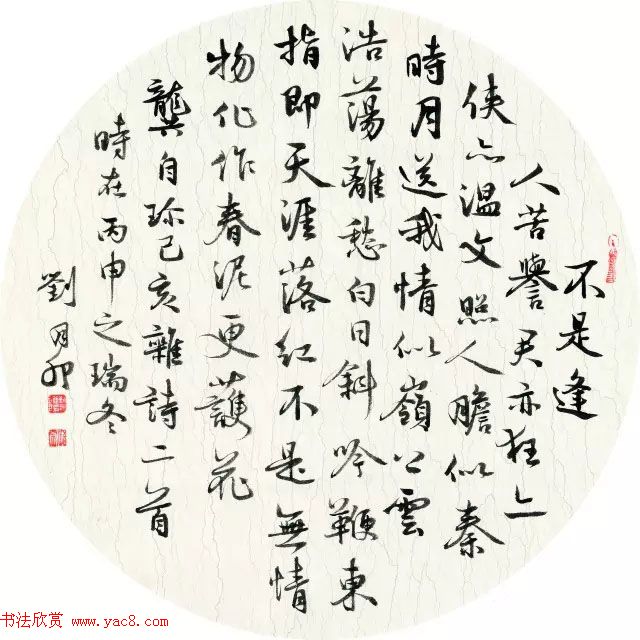 不是逢
人苦譽君亦狂亦
俠亦温文照人膽似秦
時月送我情似嶺上雲
浩蕩離愁白日斜吟鞭東
指即天涯落紅不是無情
物化作春泥更護花
龔自珍己亥雜詩二首
時在丙申之瑞冬
劉月卯
书法欣赏 www.yac8.com